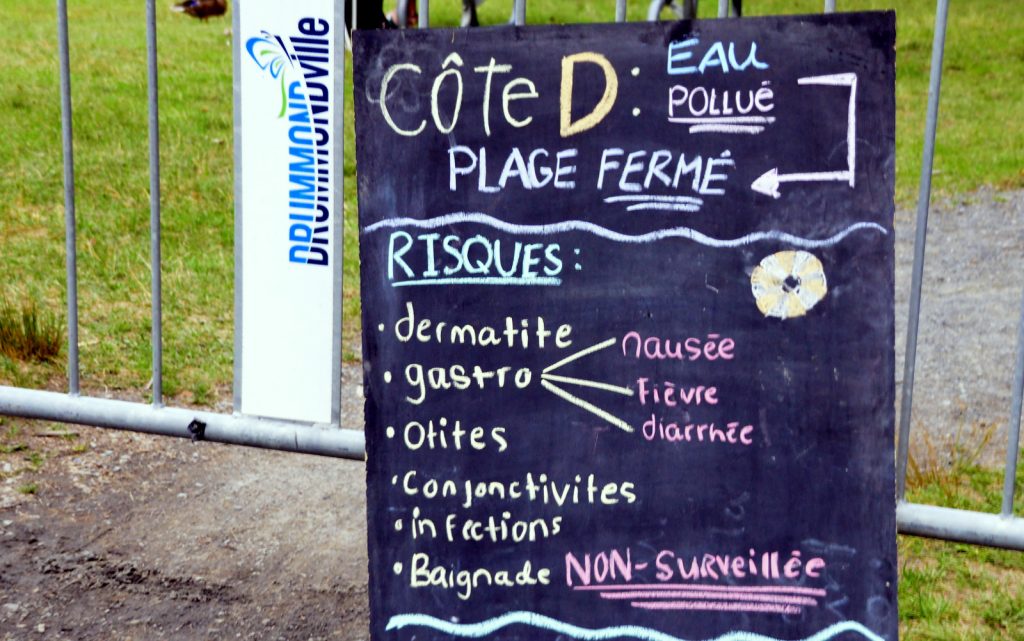 DRUMMONDville
CÔTE D:
EAU
POLLUÉ
PLAGE FERMÉ
RISQUES:
• dermatite
• gastro
nausée
fièvre
diarrhée
• Otites
• Conjonctivites
• infections
• Baignade NON-SURVEILLÉE